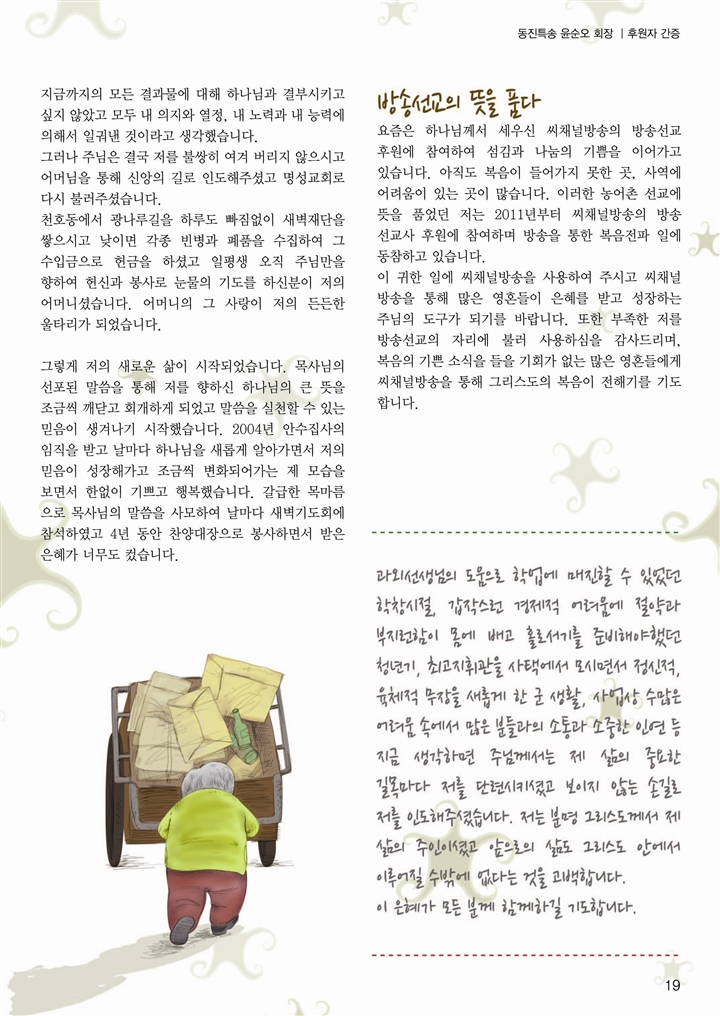 동진특송 윤순오 회장 | 후원자 간증
지금까지의 모든 결과물에 대해 하나님과 결부시키고
싶지 않았고 모두 내 의지와 열정, 내 노력과 내 능력에
의해서 일궈낸 것이라고 생각했습니다.
그러나 주님은 결국 저를 불쌍히 여겨 버리지 않으시고
어머님을 통해 신앙의 길로 인도해주셨고 명성교회로
다시 불러주셨습니다.
천호동에서 광나루길을 하루도 빠짐없이 새벽재단을
쌓으시고 낮이면 각종 빈병과 폐품을 수집하여 그
수입금으로 헌금을 하셨고 일평생 오직 주님만을
향하여 헌신과 봉사로 눈물의 기도를 하신분이 저의
어머니셨습니다. 어머니의 그 사랑이 저의 든든한
울타리가 되었습니다.
그렇게 저의 새로운 삶이 시작되었습니다. 목사님의
선포된 말씀을 통해 저를 향하신 하나님의 큰 뜻을
조금씩 깨닫고 회개하게 되었고 말씀을 실천할 수 있는
믿음이 생겨나기 시작했습니다. 2004년 안수집사의
임직을 받고 날마다 하나님을 새롭게 알아가면서 저의
믿음이 성장해가고 조금씩 변화되어가는 제 모습을
보면서 한없이 기쁘고 행복했습니다. 갈급한 목마름
으로 목사님의 말씀을 사모하여 날마다 새벽기도회에
참석하였고 4년 동안 찬양대장으로 봉사하면서 받은
은혜가 너무도 컸습니다.
방송선교의 뜻을 품다
요즘은 하나님께서 세우신 씨채널방송의 방송선교
후원에 참여하여 섬김과 나눔의 기쁨을 이어가고
있습니다. 아직도 복음이 들어가지 못한 곳, 사역에
어려움이 있는 곳이 많습니다. 이러한 농어촌 선교에
뜻을 품었던 저는 2011년부터 씨채널방송의 방송
선교사 후원에 참여하며 방송을 통한 복음전파 일에
동참하고 있습니다.
이 귀한 일에 씨채널방송을 사용하여 주시고 씨채널
방송을 통해 많은 영혼들이 은혜를 받고 성장하는
주님의 도구가 되기를 바랍니다. 또한 부족한 저를
방송선교의 자리에 불러 사용하심을 감사드리며,
복음의 기쁜 소식을 들을 기회가 없는 많은 영혼들에게
씨채널방송을 통해 그리스도의 복음이 전해기를 기도
합니다.
과외선생님의 도움으로 학업에 매진할 수 있었던
학창시절, 갑작스런 경제적 어려움에 절약과
부지런함이 몸에 배고 홀로서기를 준비해야했던
청년기, 최고지휘관을 사택에서 모시면서 정신적,
육체적 무장을 새롭게 한 군 생활, 사업상 수많은
어려움 속에서 많은 분들과의 소통과 소중한 인연 등
지금 생각하면 주님께서는 제 삶의 중요한
길목마다 저를 단련시키셨고 보이지 않는 손길로
저를 인도해주셨습니다. 저는 분명 그리스도께서 제
삶의 주인이셨고 앞으로의 삶도 그리스도 안에서
이루어질 수밖에 없다는 것을 고백합니다.
이 은혜가 모든 분께 함께하길 기도합니다.
19